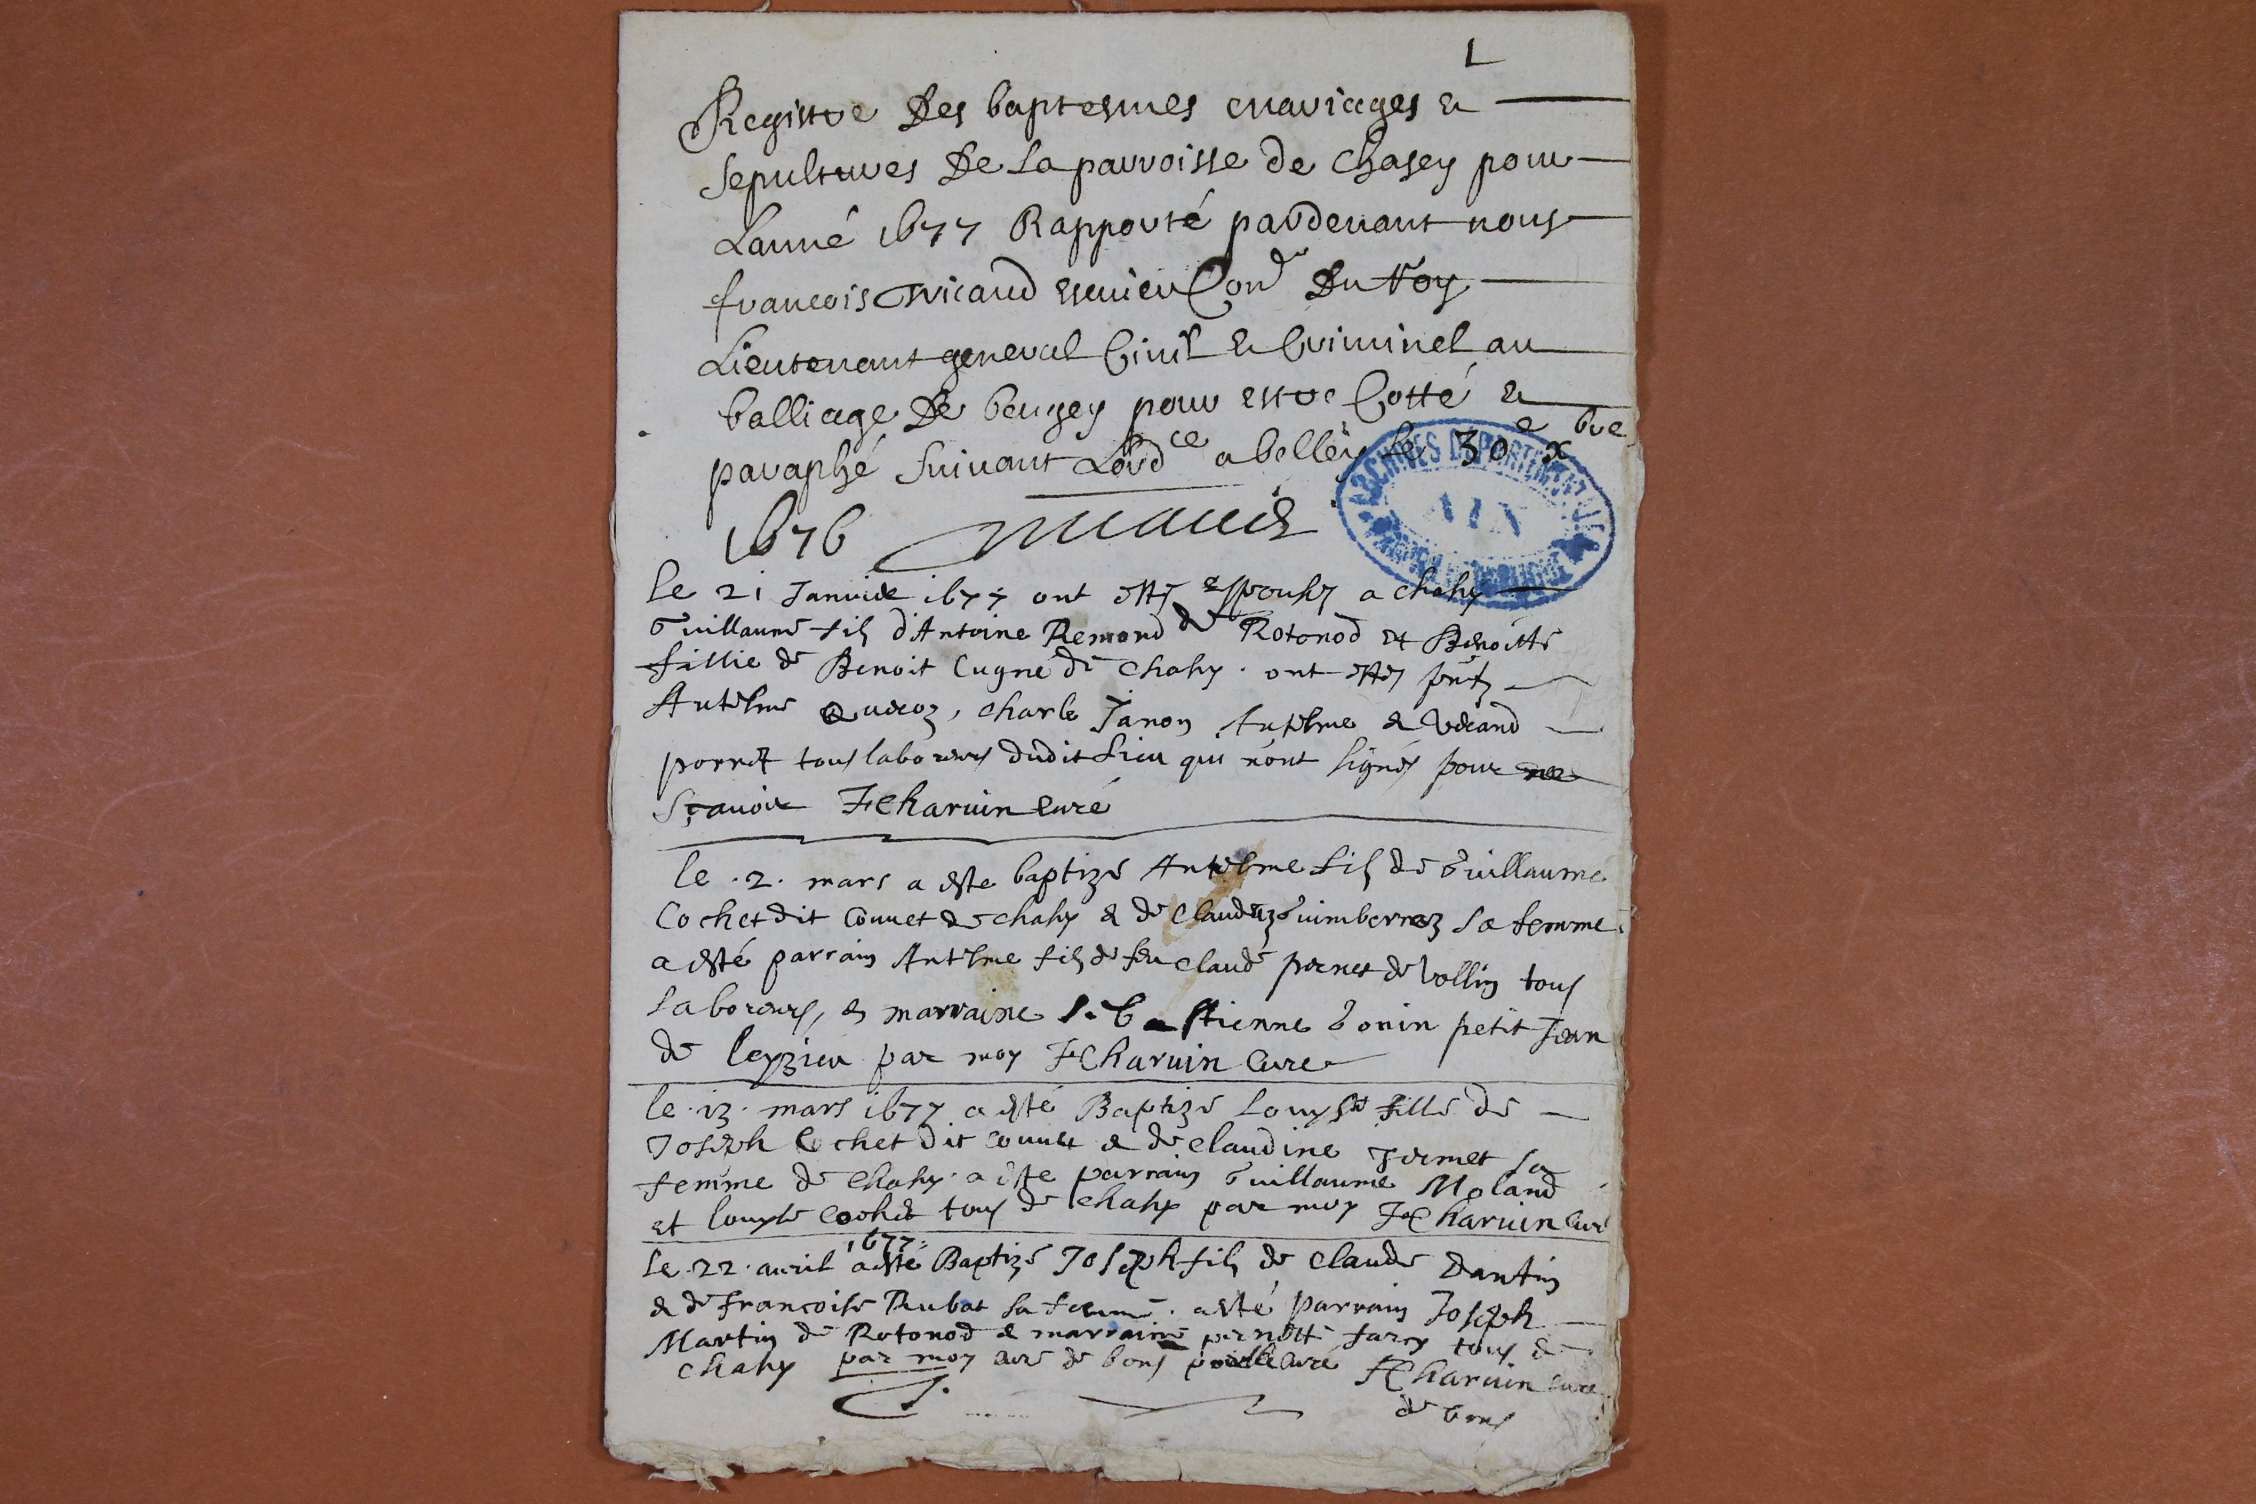 1
Registre Des baptesmes mariages &
sepultures De la parroisse de Chasey pour
Lanné 1677 Rapporté pardevant nous
francois escuier Con.er Du Roy
Lieutenant general Civil & Criminel au
balliage De beugey pour estre Cotté &
paraphé suivant Lord.ce a belley le 30e xbre
1676
le 21 Janvier 1677 ont estes espouses a chasey
Guillaume fils d'Antoine Remond de Rotonod et Benoitte
fillie de Benoit Cugne de Chasey. ont estes pntz
Antelme charle Janon Antelme & Verand
pornet tous laboreurs dudit lieu qui n'ont signés pour ne
sçavoir F Charvin curé
le .2. mars a este baptizé Antelme fils de Guillaume
Cochet dit Couvet de chasey & de Claudaz Guimbernaz sa femme
a esté parrain Antelme fils de feu Claude pernet de vollin tous
laboreurs, & marraine Sebastienne Gonin petit Jean
de leyzieu par moy F Charvin Cure
le .13. mars 1677 a esté Baptizé Louyse fille de
Joseph Cochet dit couvet & de Claudine Jermet sa
femme de Chasey. a este parrain Guillaume Moland
et Louyse cochet tous de Chasey par moy F Charvin curé
1677
le .22. avril a esté Baptizé Joseph fils de Claude Dantin
& de francoise Rubat sa femme. a esté parrain Joseph
Martin de Rotonod & marraine pernette farcy tous de
chasey par moy curé de bons F Charvin cure
de bons
ARCHIVES DEPARTEMENTALES
AIN